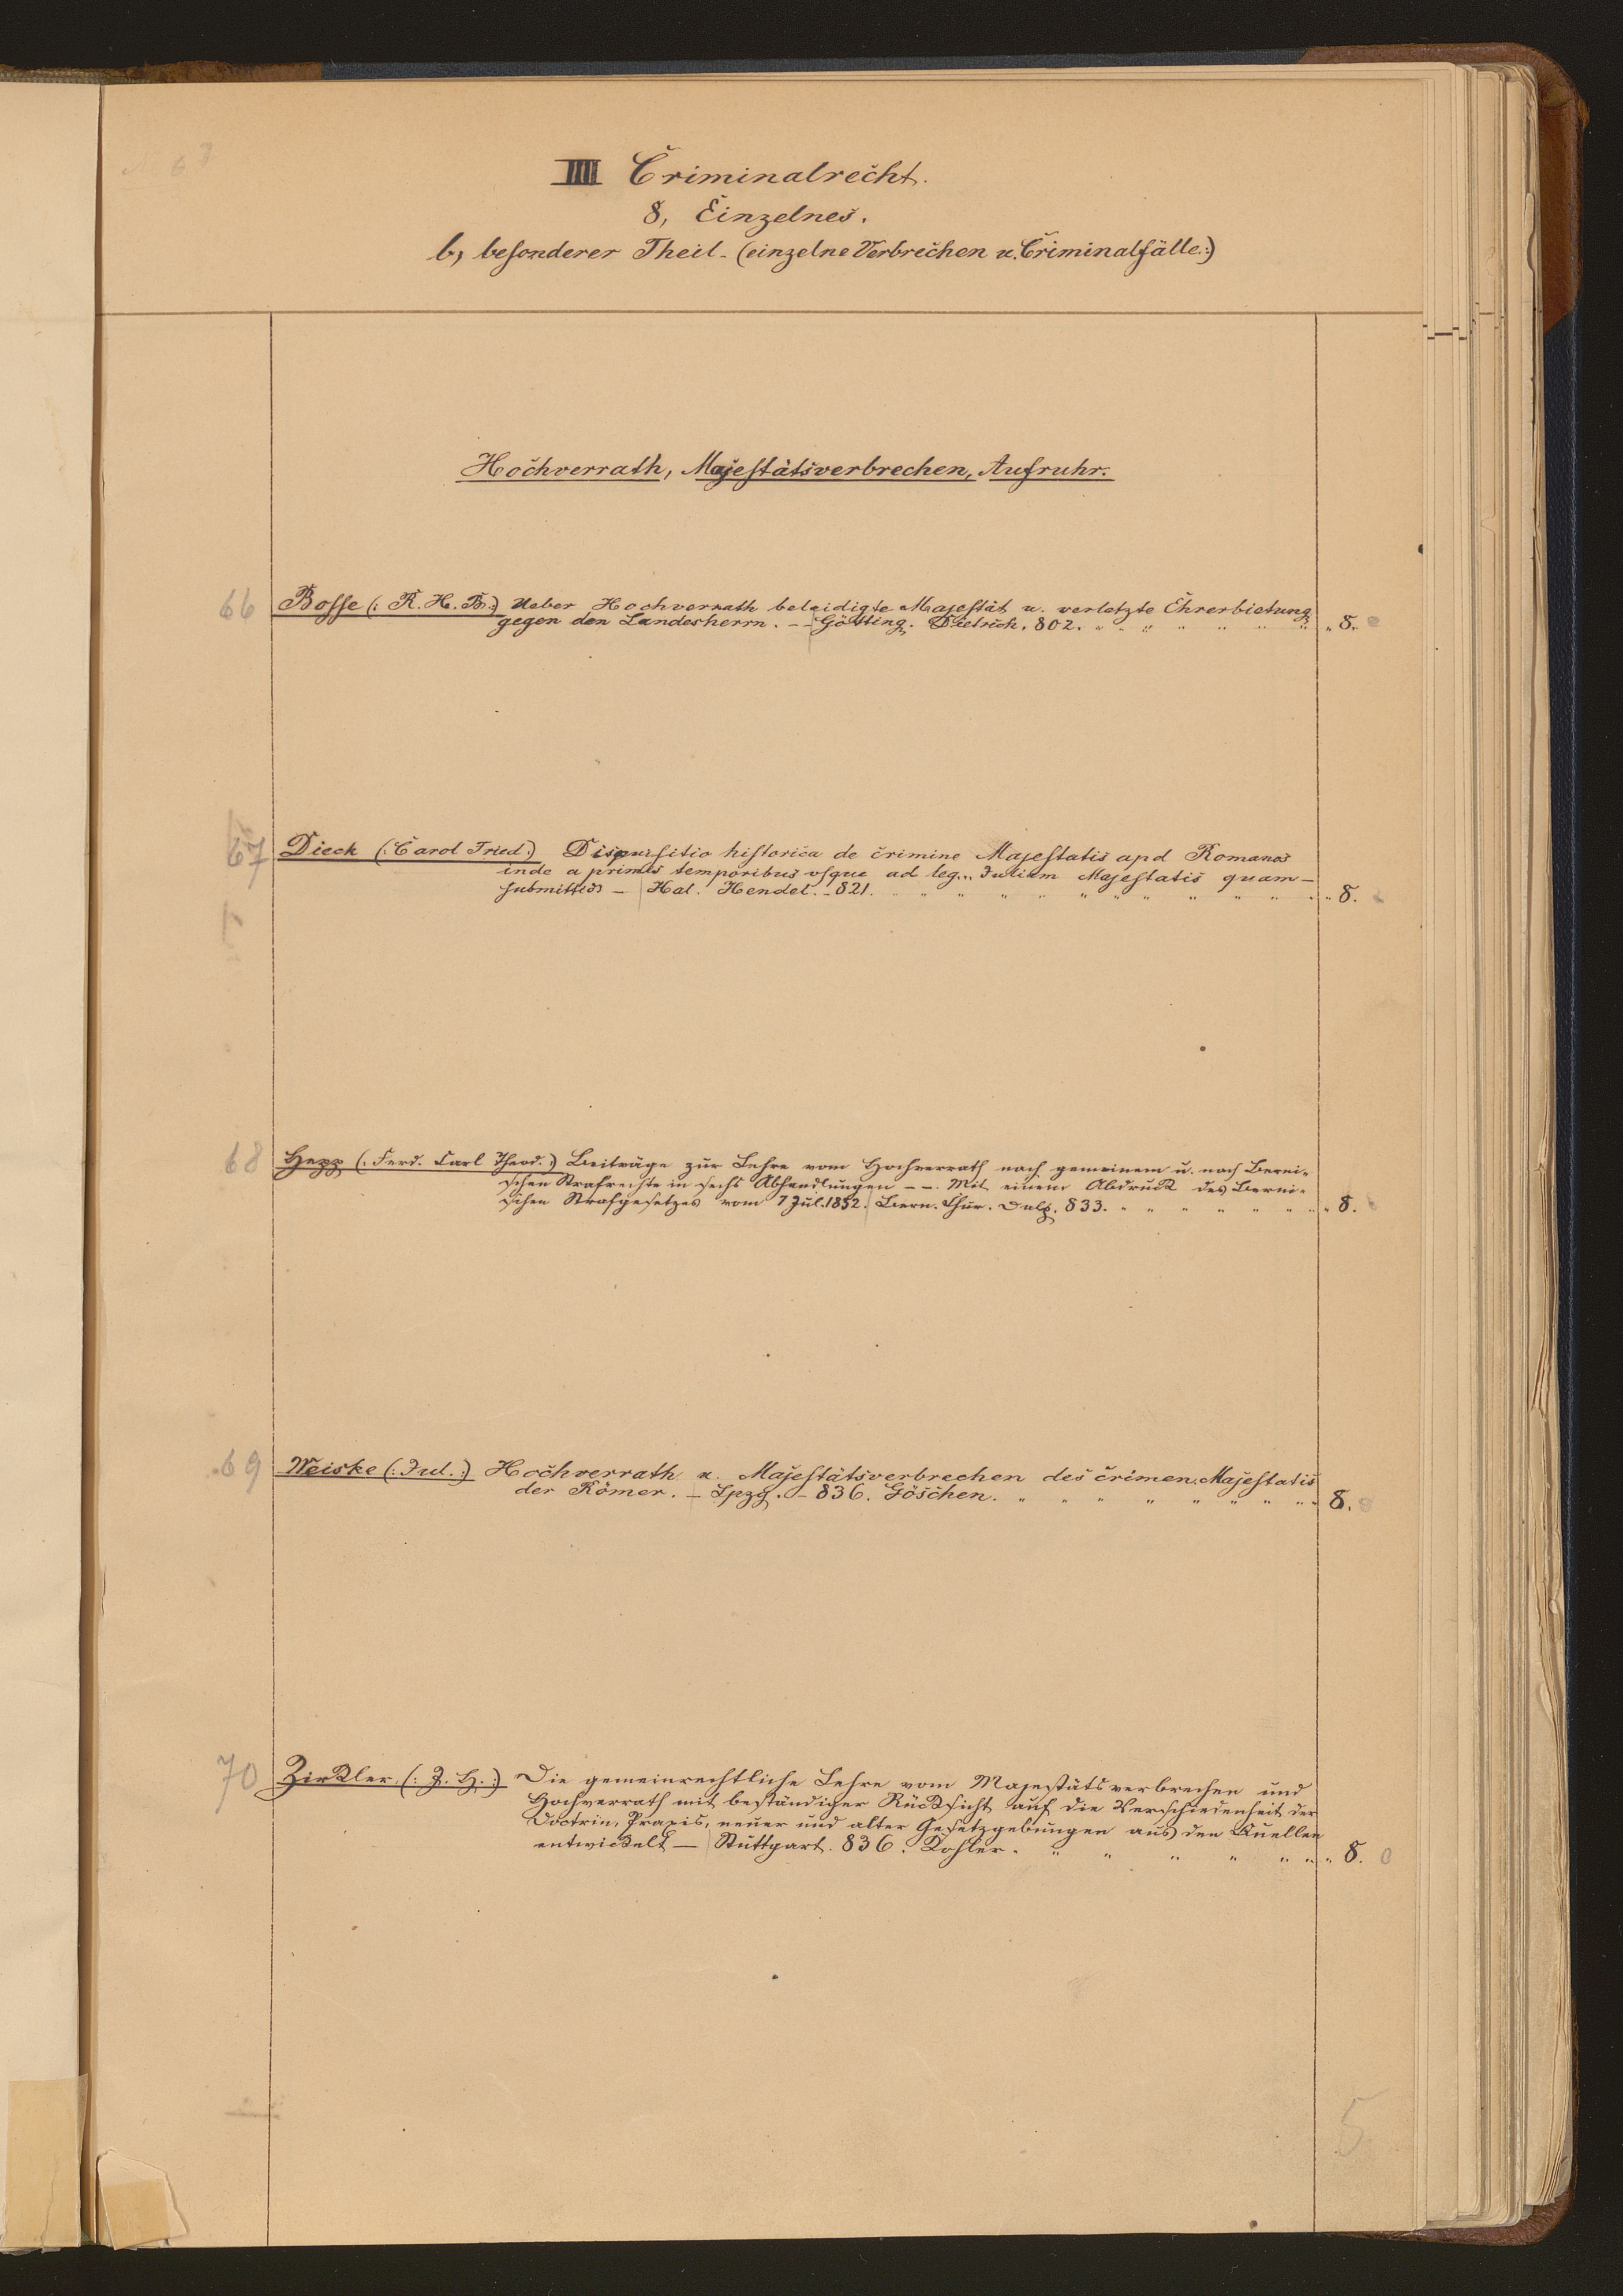 IIII Criminalrecht.
8, Einzelnes.
b, besonderer Theil. (einzelne Verbrechen u. Criminalfälle:)
Hochverrath, Majestätsverbrechen, Aufruhr.
66 Bosse (: R. H. B:) Ueber Hochverrath beleidigte Majestät u. verletzte Ehrerbietung
gegen den Landesherrn. – – Götting. Dietrich. 802. " " " " " " " " 8.
67 Dieck (: Carol Fried:) Disquisitio historica de crimine Majestatis apd Romanos
inde a primis temporibus vsque ad leg. Juliam Majestatis quam–
submitted – Hal. Hendel. – 821. " " " " " " " " " " 8.
68 Hepp (: Ferd. Carl Theod. :) Beiträge zur Lehre vom Hochverrath nach gemeinem u. nach Berni-
schen Strafrechte in sechs Abhandlungen – –. Mit einem Abdruck des Berni-
schen Strafgesetzes vom 7 Jul. 1832. Bern. Chur. Dalp. 833. " " " " " " " " 8.
69 Weiske (: Jul. :) Hochverrath u. Majestätsverbrechen des crimen Majestatis
der Römer. – Lpzg. – 836. Göschen. " " " " " " " " " 8.
70 Zirkler (: J. H. :) Die gemeinrechtliche Lehre vom Majestätsverbrechen und
Hochverrath mit beständiger Rücksicht auf die Verschiedenheit der
Doctrin, Praxis, neuer und alter Gesetzgebungen aus den Quellen
entwickelt – Stuttgart. 836. Kohler. " " " " " " " 8.
5